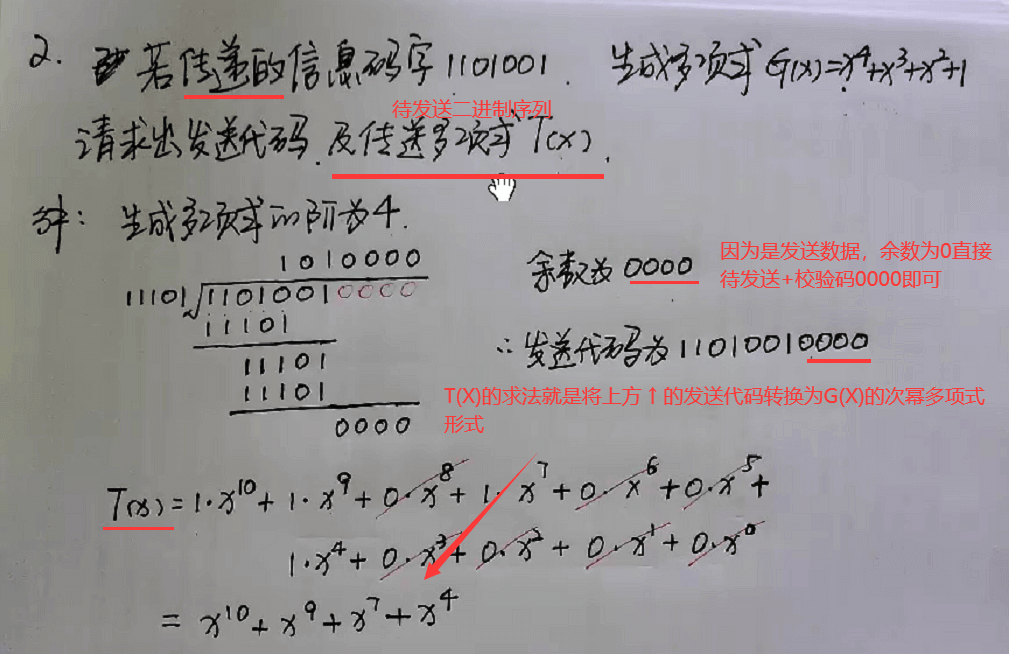 2. 若传递的信息码字1101001. 生成多项式G(x)=x⁴+x³+x²+1
待发送二进制序列
请求出发送代码.及传送多项式T(x).
解: 生成多项式的阶为4.
1010000
11101 11010010000
11101
11101
11101
0000
余数为0000
因为是发送数据，余数为0直接
待发送+校验码0000即可
∴发送代码为11010010000
T(X)的求法就是将上方↑的发送代码转换为G(X)的次幂多项式
形式
T(x)=1·x¹⁰+1·x⁹+0·x⁸+1·x⁷+0·x⁶+0·x⁵+
1·x⁴+0·x³+0·x²+0·x¹+0·x⁰
=x¹⁰+x⁹+x⁷+x⁴